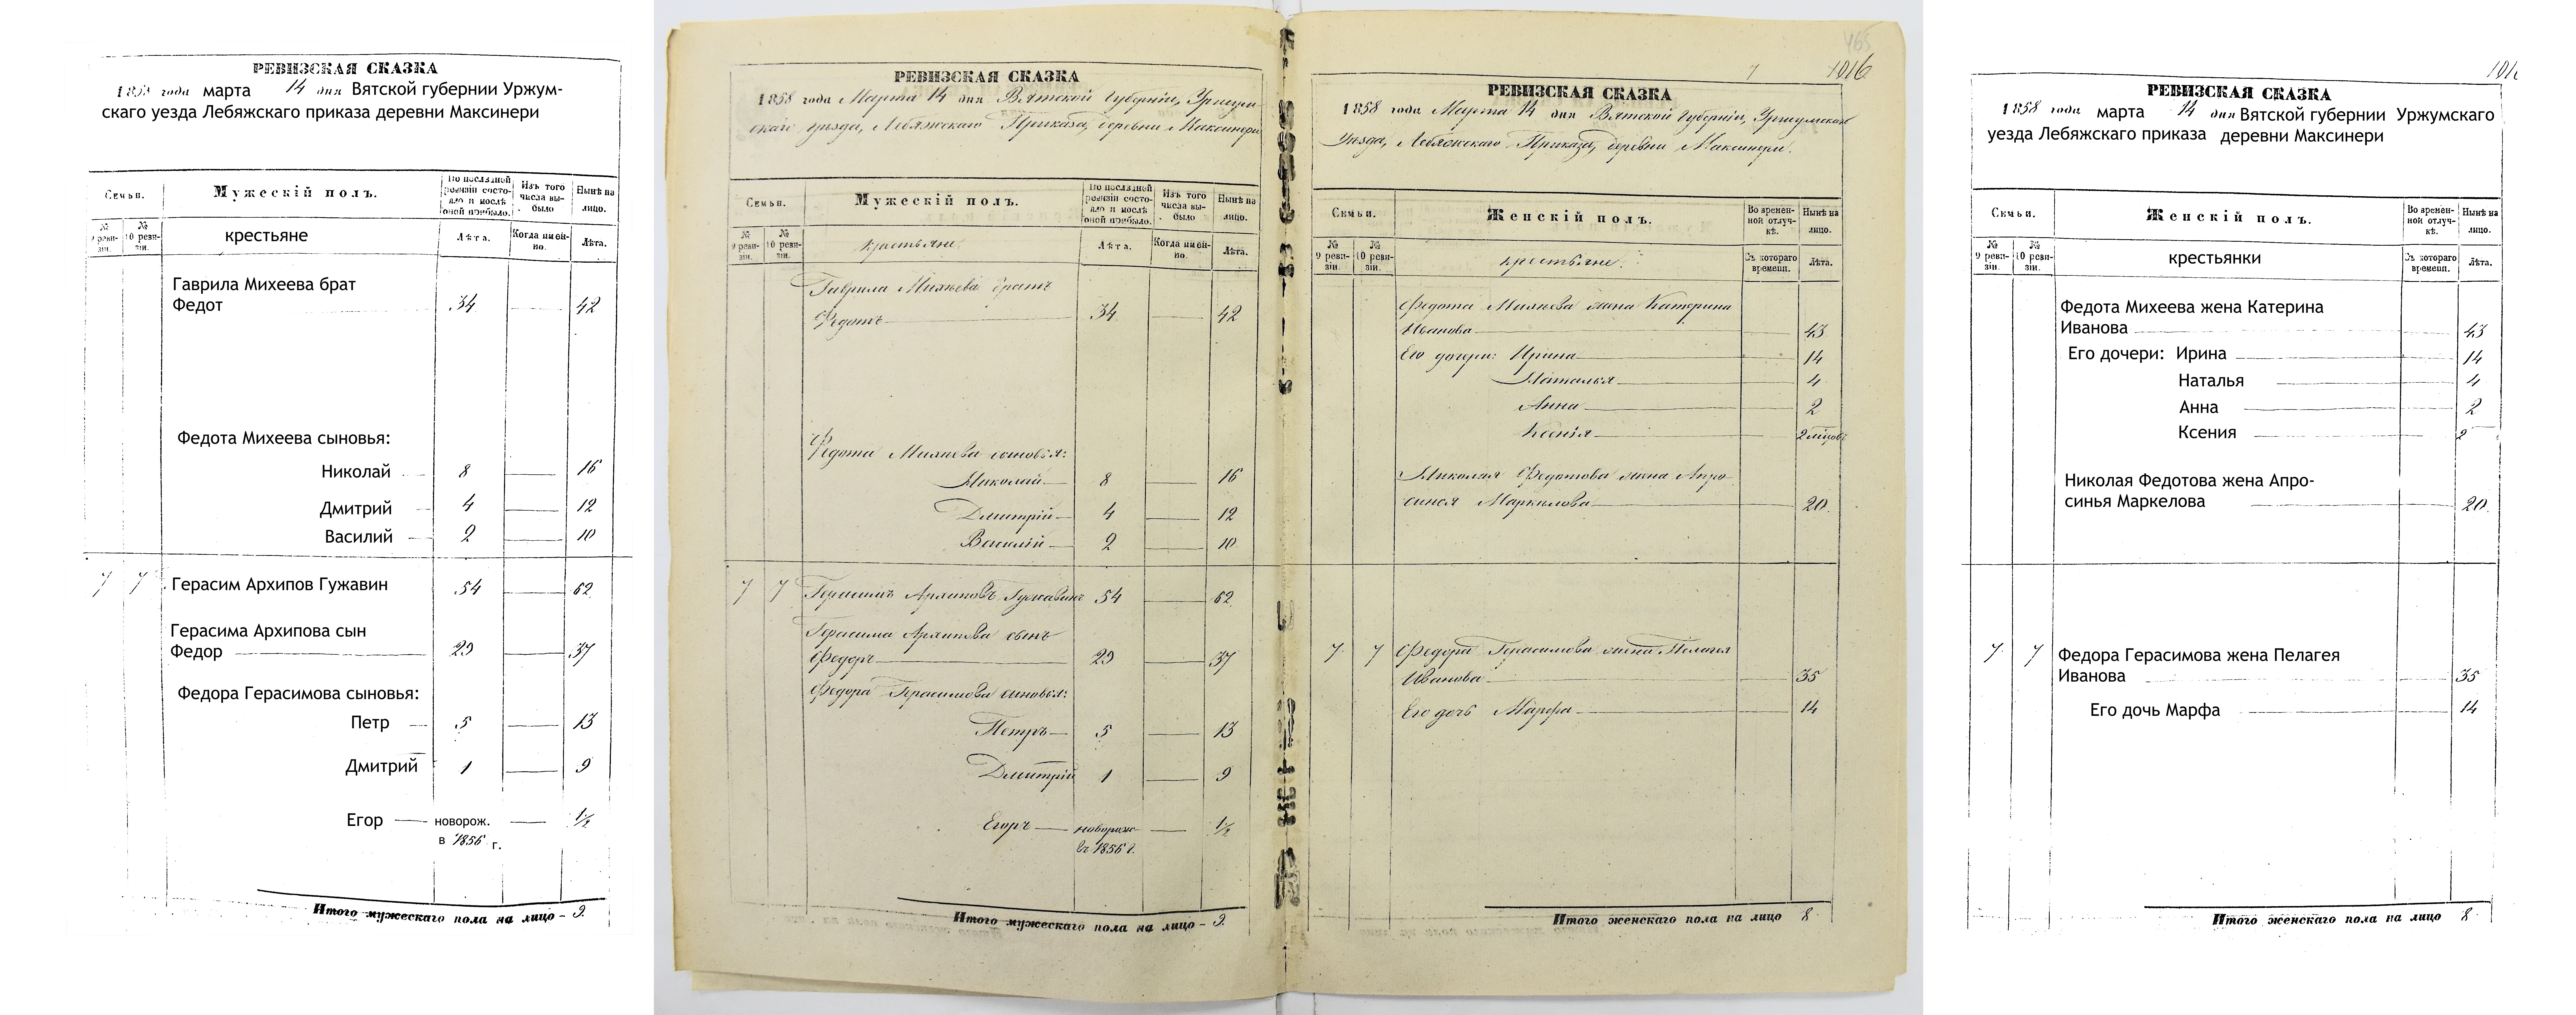 РЕВИЗСКАЯ СКАЗКА
1858 года марта 14 дня Вятской губернии Уржум-
скаго уезда Лебяжскаго приказа деревни Максинери
Семьи.
Мужескій полъ.
По последней ревизіи состояло и послѣ оной прибыло.
Изъ того числа выбыло
Нынѣ на лицо.
№ 9 ревизіи.
№ 10 ревизіи.
крестьяне
Лѣта.
Когда именно.
Лѣта.
Гаврила Михеева брат
Федот 34 42
Федота Михеева сыновья:
Николай 8 16
Дмитрий 4 12
Василий 2 10
7 7 Герасим Архипов Гужавин 54 62
Герасима Архипова сын
Федор 29 37
Федора Герасимова сыновья:
Петр 5 13
Дмитрий 1 9
Егор новорож. 1/2
в 1856 г.
Итого мужескаго пола на лицо - 9.
465
7 1016
РЕВИЗСКАЯ СКАЗКА
1858 года Марта 14 дня Вятской Губерніи, Уржум-
скаго уѣзда, Лебяжскаго Приказа, деревни Максинери
Семьи.
Мужескій полъ.
По последней ревизіи состояло и послѣ оной прибыло.
Изъ того числа выбыло
Нынѣ на лицо.
№ 9 ревизіи.
№ 10 ревизіи.
крестьяне
Лѣта.
Когда именно.
Лѣта.
Гаврила Михѣева братъ
Федотъ 34 42
Федота Михѣева сыновья:
Николай 8 16
Дмитрій 4 12
Василій 2 10
7 7 Герасимъ Архиповъ Гужавинъ 54 62
Герасима Архипова сынъ
Федоръ 29 37
Федора Герасимова сыновья:
Петръ 5 13
Дмитрій 1 9
Егоръ новорож 1/2
въ 1856 г.
Итого мужескаго пола на лицо - 9.
РЕВИЗСКАЯ СКАЗКА
1858 года Марта 14 дня Вятской Губерніи, Уржумскаго
Уезда, Лебяжскаго Приказа, деревни Максинери.
Семьи.
Женскій полъ.
Во временной отлучкѣ.
Нынѣ на лицо.
№ 9 ревизіи.
№ 10 ревизіи.
крестьяне.
Съ котораго времени.
Лѣта.
Федота Михѣева жена Катерина
Иванова 43
Его дочери: Ирина 14
Наталья 4
Анна 2
Ксенія 2 мѣсяцовъ
Николая Федотова жена Апро-
синья Маркелова 20
7 7 Федора Герасимова жена Пелагея
Иванова 35
Его дочь Марфа 14
Итого женскаго пола на лицо 8
1016
РЕВИЗСКАЯ СКАЗКА
1858 года марта 14 дня Вятской губернии Уржумского
уезда Лебяжского приказа деревни Максинери
Семьи.
Женскій полъ.
Во временной отлучкѣ.
Нынѣ на лицо.
№ 9 ревизіи.
№ 10 ревизіи.
крестьянки
Съ котораго времени.
Лѣта.
Федота Михеева жена Катерина
Иванова 43
Его дочери: Ирина 14
Наталья 4
Анна 2
Ксения 2
Николая Федотова жена Апро-
синья Маркелова 20
7 7 Федора Герасимова жена Пелагея
Иванова 35
Его дочь Марфа 14
Итого женскаго пола на лицо 8